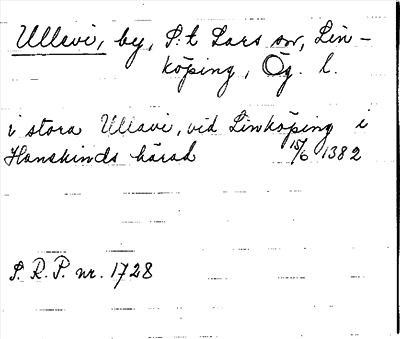 Ullevi, by, S:t Lars sn, Lin-
köping, Ög. l.
i stora Ullavi, vid Linköping i
Hanskinds härad 15/6 1382
S. R. P. nr. 1728